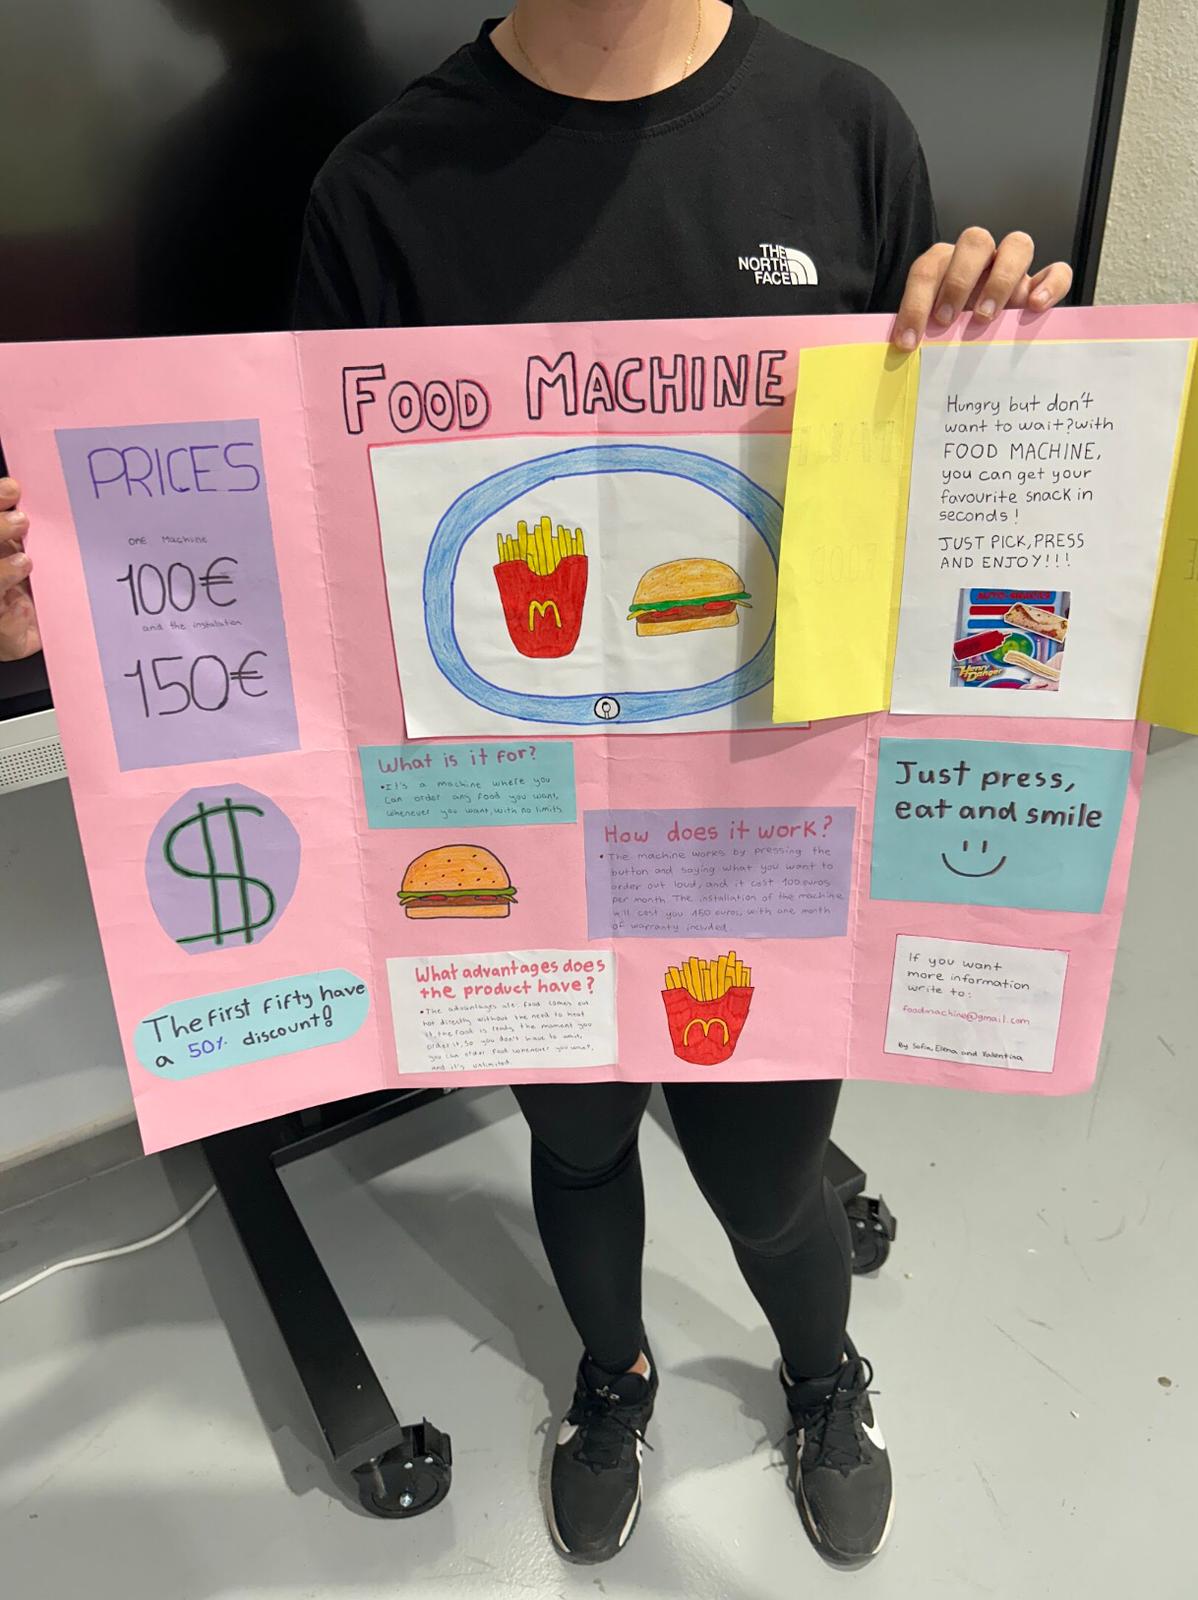 THE
NORTH
FACE
FOOD MACHINE
PRICES
ONE Machine
100€
and the installation
150€
The first fifty have
a 50% discount!
M
What is it for?
•It's a machine where you
can order any food you want,
whenever you want, with no limits.
How does it work?
•The machine works by pressing the
button and saying what you want to
order out loud, and it cost 100 euros
per month. The installation of the machine
will cost you 150 euros, with one month
of warranty included.
What advantages does
the product have?
•The advantages are: Food comes out
hot directly without the need to heat
it, the food is ready the moment you
order it, so you don't have to wait,
you can order food whenever you want,
and it's unlimited.
M
Hungry but don't
want to wait?with
FOOD MACHINE,
you can get your
favourite snack in
seconds!
JUST PICK,PRESS
AND ENJOY!!!
AUTO-SNACKER
Henry
Danger
Just press,
eat and smile
If you want
more information
write to:
foodmachine@gmail.com
By Sofia, Elena and Valentina